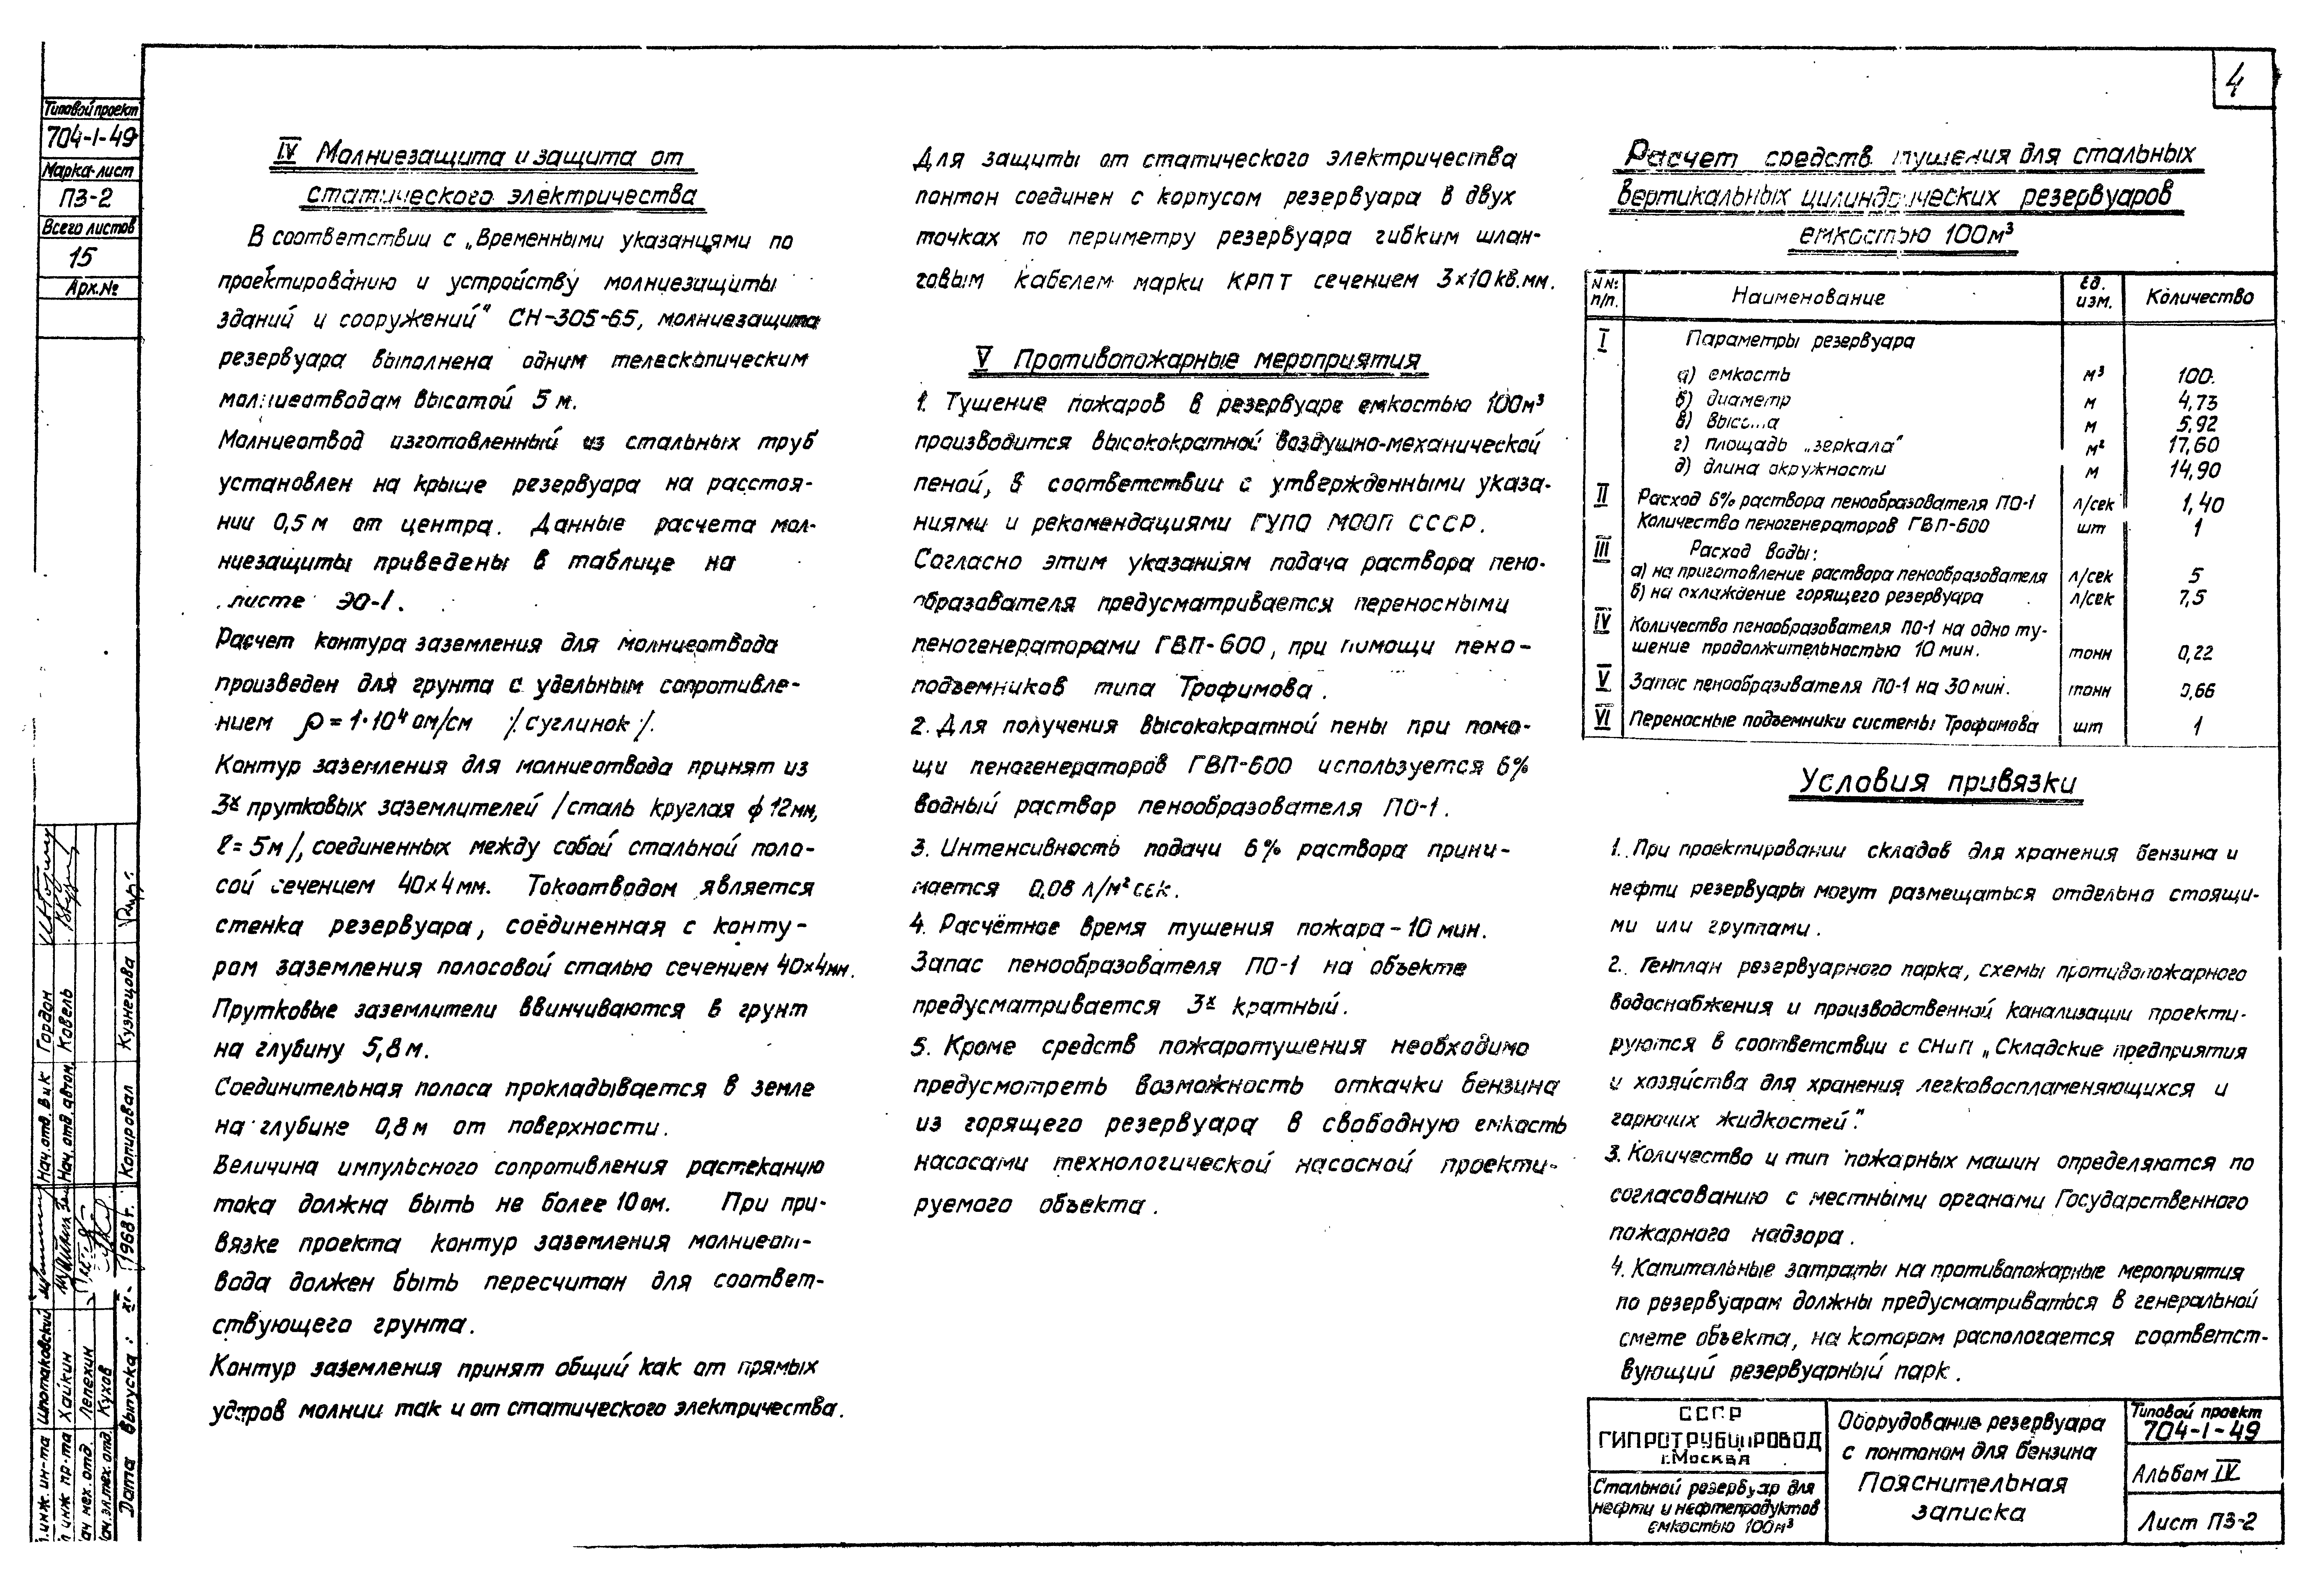 4
Типовой проект
704-1-49
Марка-лист
ПЗ-2
Всего листов
15
Арх.№
IV Молниезащита и защита от
статического электричества
В соответствии с „Временными указаниями по
проектированию и устройству молниезащиты
зданий и сооружений" СН-305-65, молниезащита
резервуара выполнена одним телескопическим
молниеотводам высотой 5 м.
Молниеотвод изготовленный из стальных труб
установлен на крыше резервуара на расстоя-
нии 0,5 м от центра. Данные расчета мол-
ниезащиты приведены в таблице на
листе ЭО-1.
Расчет контура заземления для молниеотвода
произведен для грунта с удельным сопротивле-
нием ρ = 1·10⁴ ом/см /суглинок/.
Контур заземления для молниеотвода принят из
3х прутковых заземлителей /сталь круглая ϕ 12мм,
ℓ = 5м/, соединенных между собой стальной поло-
сой сечением 40×4 мм. Токоотводом является
стенка резервуара, соединенная с конту-
ром заземления полосовой сталью сечением 40×4мм.
Прутковые заземлители ввинчиваются в грунт
на глубину 5,8 м.
Соединительная полоса прокладывается в земле
на глубине 0,8 м от поверхности.
Величина импульсного сопротивления растеканию
тока должна быть не более 10 ом. При при-
вязке проекта контур заземления молниеот-
вода должен быть пересчитан для соответ-
ствующего грунта.
Контур заземления принят общий как от прямых
ударов молнии так и от статического электричества.
Для защиты от статического электричества
понтон соединен с корпусом резервуара в двух
точках по периметру резервуара гибким шлан-
говым кабелем марки КРПТ сечением 3×10 кв.мм.
V Противопожарные мероприятия
1. Тушение пожаров в резервуаре емкостью 100м³
производится высокократной воздушно-механической
пеной, в соответствии с утвержденными указа-
ниями и рекомендациями ГУПО МООП СССР.
Согласно этим указаниям подача раствора пено-
образователя предусматривается переносными
пеногенераторами ГВП-600, при помощи пено-
подъемников типа Трофимова.
2. Для получения высокократной пены при помо-
щи пеногенераторов ГВП-600 используется 6%
водный раствор пенообразователя ПО-1.
3. Интенсивность подачи 6% раствора прини-
мается 0,08 л/м² сек.
4. Расчётное время тушения пожара - 10 мин.
Запас пенообразователя ПО-1 на объекте
предусматривается 3х кратный.
5. Кроме средств пожаротушения необходимо
предусмотреть возможность откачки бензина
из горящего резервуара в свободную емкость
насосами технологической насосной проекти-
руемого объекта.
Расчет средств тушения для стальных
вертикальных цилиндрических резервуаров
емкостью 100м³
NN: п/п. Наименование Ед. изм. Количество
I Параметры резервуара
а) емкость м³ 100.
б) диаметр м 4,73
в) выс...а м 5,92
г) площадь „зеркала" м² 17,60
д) длина окружности м 14,90
II Расход 6% раствора пенообразователя ПО-1 л/сек 1,40
Количество пеногенераторов ГВП-600 шт 1
III Расход воды:
а) на приготовление раствора пенообразователя л/сек 5
б) на охлаждение горящего резервуара л/сек 7,5
IV Количество пенообразователя ПО-1 на одно ту-
шение продолжительностью 10 мин. тонн 0,22
V Запас пенообразивателя ПО-1 на 30 мин. тонн 0,66
VI Переносные подъемники системы Трофимова шт 1
Условия привязки
1. При проектировании складов для хранения бензина и
нефти резервуары могут размещаться отдельно стоящи-
ми или группами.
2. Генплан резервуарного парка, схемы противопожарного
водоснабжения и производственной канализации проекти-
руются в соответствии с СНиП „Складские предприятия
и хозяйства для хранения легковоспламеняющихся и
горючих жидкостей".
3. Количество и тип пожарных машин определяются по
согласованию с местными органами Государственного
пожарного надзора.
4. Капитальные затраты на противопожарные мероприятия
по резервуарам должны предусматриваться в генеральной
смете объекта, на котором распологается соответст-
вующий резервуарный парк.
СССР
ГИПРОТРУБОПРОВОД
г.Москва
Стальной резервуар для
нефти и нефтепродуктов
емкостью 100м³
Оборудование резервуара
с понтоном для бензина
Пояснительная
записка
Типовой проект
704-1-49
Альбом IV
Лист ПЗ-2
Нач. отд. ВиК Гордон
Нач. отд. автом. Ковель
Копировал Кузнецова
инж. ин-та Шпотаковский
инж пр-та Хайкин
ач мех. отд. Лепехин
ач. эл.тех. отд. Кухов
Дата выпуска: XI- 1968г.